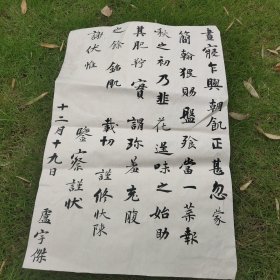 晝寢乍興朝飢正甚忽蒙
簡翰猥賜盤飧當一葉報
秋之初乃韭花逞味之始助
其肥羜實謂珎羞充腹
之餘銘肌載切謹修狀陳
謝伏惟鑒察謹狀
十二月十九日
盧宇傑